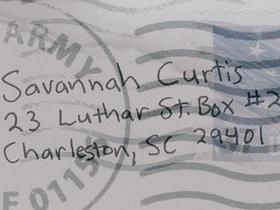 ARMY
Savannah Curtis
23 Luthar St. Box #2
Charleston, SC 29401